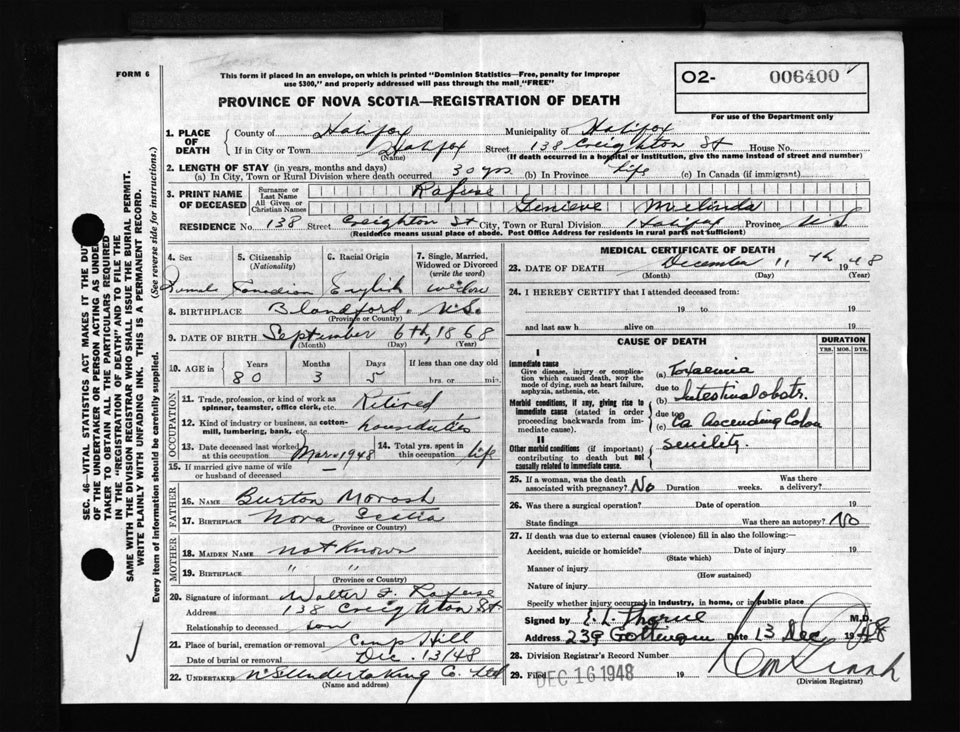 FORM 6
This form if placed in an envelope, on which is printed "Dominion Statistics—Free, penalty for improper
use $300," and properly addressed will pass through the mail "FREE"
PROVINCE OF NOVA SCOTIA—REGISTRATION OF DEATH
O2- 006400
For use of the Department only
SEC. 46—VITAL STATISTICS ACT MAKES IT THE DUTY
OF THE UNDERTAKER OR PERSON ACTING AS UNDER-
TAKER TO OBTAIN ALL THE PARTICULARS REQUIRED
IN THE "REGISTRATION OF DEATH" AND TO FILE THE
SAME WITH THE DIVISION REGISTRAR WHO SHALL ISSUE THE BURIAL PERMIT.
WRITE PLAINLY WITH UNFADING INK. THIS IS A PERMANENT RECORD.
Every item of information should be carefully supplied. (See reverse side for instructions.)
1. PLACE OF DEATH County of Halifax Municipality of Halifax
If in City or Town Halifax Street 138 Creighton St House No.
(Name) (If death occurred in a hospital or institution, give the name instead of street and number)
2. LENGTH OF STAY (in years, months and days)
(a) In City, Town or Rural Division where death occurred 30 yrs (b) In Province life (c) In Canada (if immigrant)
3. PRINT NAME OF DECEASED Surname or Last Name Rafuse
All Given or Christian Names Genieve Melinda
RESIDENCE No. 138 Street Creighton St City, Town or Rural Division Halifax Province N.S
(Residence means usual place of abode. Post Office Address for residents in rural parts not sufficient)
4. Sex 5. Citizenship (Nationality) 6. Racial Origin 7. Single, Married, Widowed or Divorced (write the word)
Female Canadian English widow
8. BIRTHPLACE Blandford. N.S.
(Province or Country)
9. DATE OF BIRTH September 6th, 1868
(Month) (Day) (Year)
10. AGE in Years Months Days If less than one day old
80 3 5 hrs. or min.
OCCUPATION
11. Trade, profession, or kind of work as spinner, teamster, office clerk, etc. Retired
12. Kind of industry or business, as cotton-mill, lumbering, bank, etc.
13. Date deceased last worked at this occupation Mar - 1948 14. Total yrs. spent in this occupation life
15. If married give name of wife or husband of deceased
FATHER
16. NAME Burton Morash
17. BIRTHPLACE Nova Scotia
(Province or Country)
MOTHER
18. MAIDEN NAME not Known
19. BIRTHPLACE " "
(Province or Country)
20. Signature of informant Walter F. Rafuse
Address 138 Creighton St
Relationship to deceased son
21. Place of burial, cremation or removal Camp Hill
Date of burial or removal Dec. 13/48
22. UNDERTAKER NS Undertaking Co. Ltd
(Name and address)
MEDICAL CERTIFICATE OF DEATH
23. DATE OF DEATH December 11th 1948
(Month) (Day) (Year)
24. I HEREBY CERTIFY that I attended deceased from:
19 to 19
and last saw h alive on 19
CAUSE OF DEATH DURATION
YRS. MOS. DYS.
I
Immediate cause
Give disease, injury or complication which caused death, NOT the mode of dying, such as heart failure, asphyxia, asthenia, etc.
(a) Toxaemia
due to
Morbid conditions, if any, giving rise to immediate cause (stated in order proceeding backwards from immediate cause).
(b) Intestinal obstr.
due to
(c) Ca Ascending Colon
II
Other morbid conditions (if important) contributing to death but not causally related to immediate cause.
senility.
25. If a woman, was the death associated with pregnancy? No Duration weeks. Was there a delivery?
26. Was there a surgical operation? Date of operation 19
State findings Was there an autopsy? No
27. If death was due to external causes (violence) fill in also the following:—
Accident, suicide or homicide? Date of injury 19
(State which)
Manner of injury
(How sustained)
Nature of injury
Specify whether injury occurred in industry, in home, or in public place
Signed by E. L. Thorne M.D.
Address 239 Gottingen Date 13 Dec 1948
28. Division Registrar's Record Number
29. Filed DEC 16 1948 19
(Division Registrar)